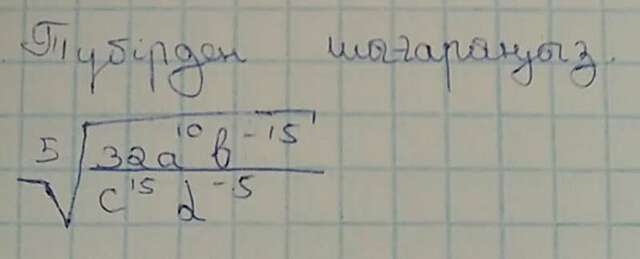 Түбірден шығараңыз.
5√(32a¹⁰b⁻¹⁵ / c¹⁵d⁻⁵)